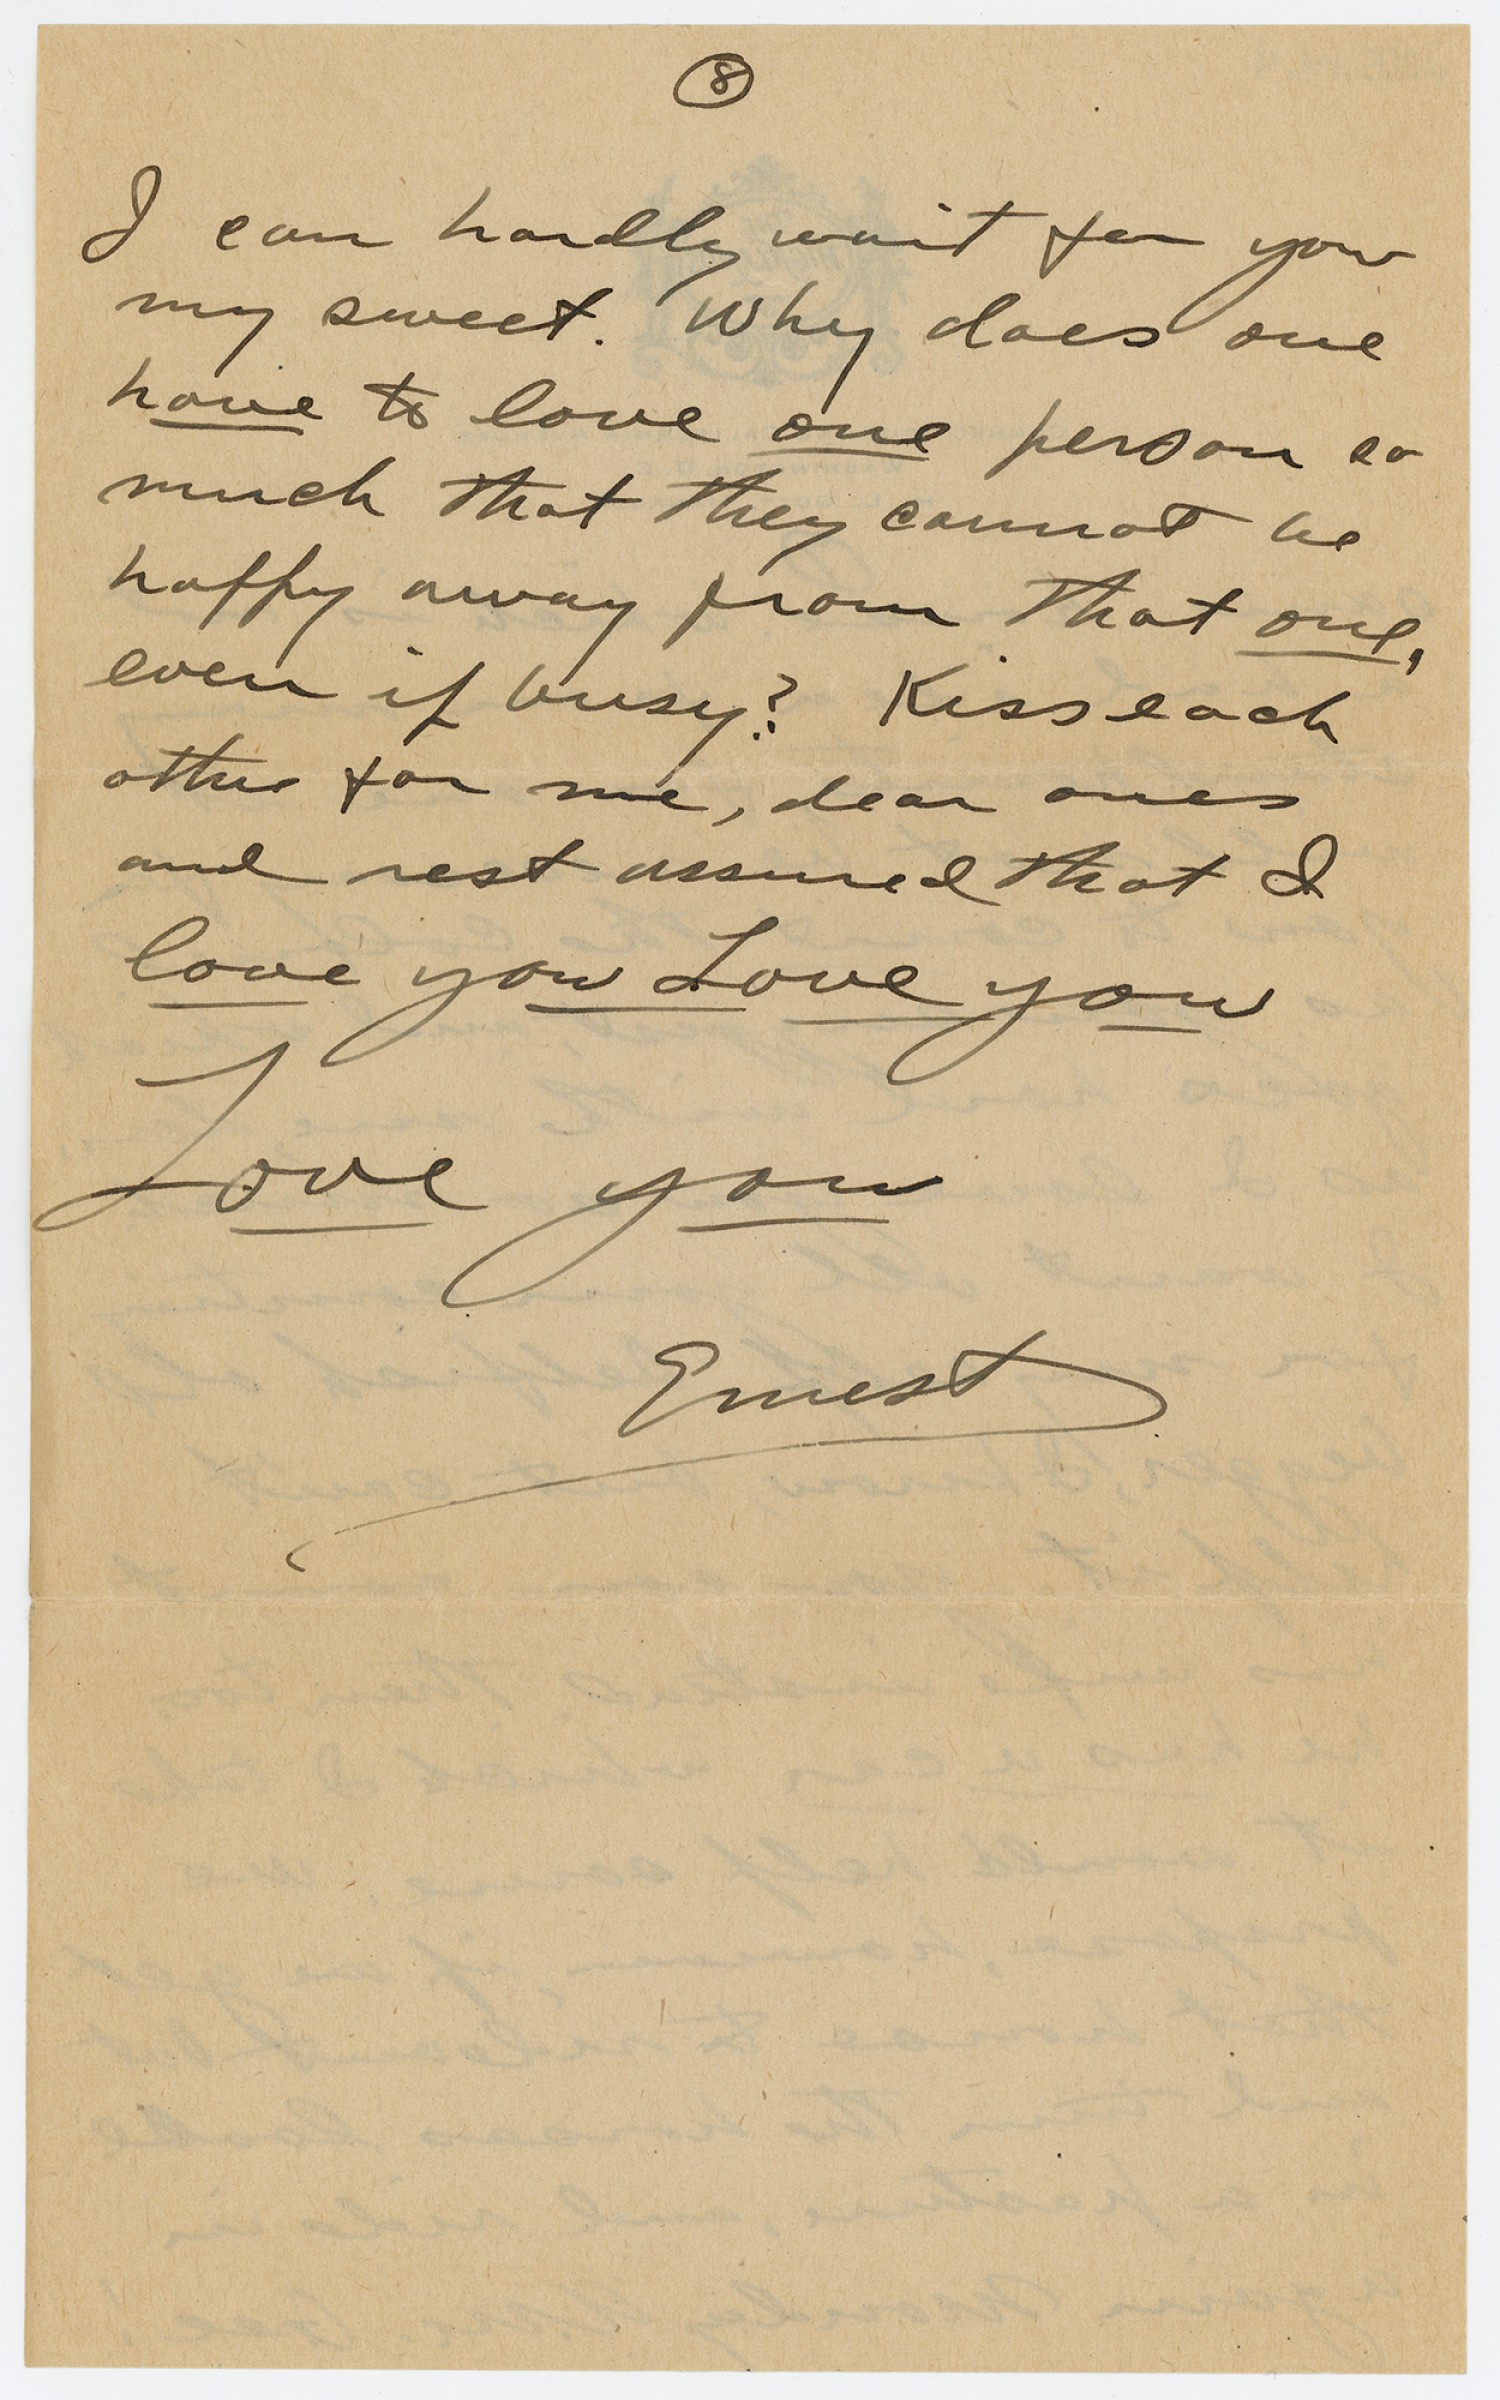 8
I can hardly wait for you
my sweet. Why does one
have to love one person so
much that they cannot be
happy away from that one,
even if busy? Kiss each
other for me, dear ones
and rest assured that I
love you Love you
Love you
Ernest